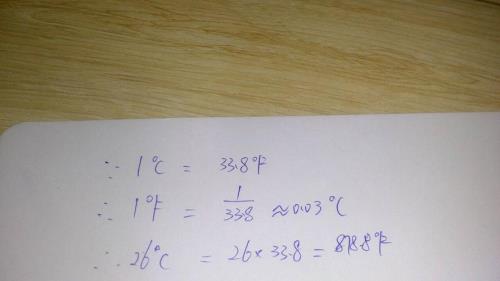 ∵ 1°C = 33.8°F
∴ 1°F = 1/33.8 ≈ 0.03°C
∴ 26°C = 26×33.8 = 878.8°F